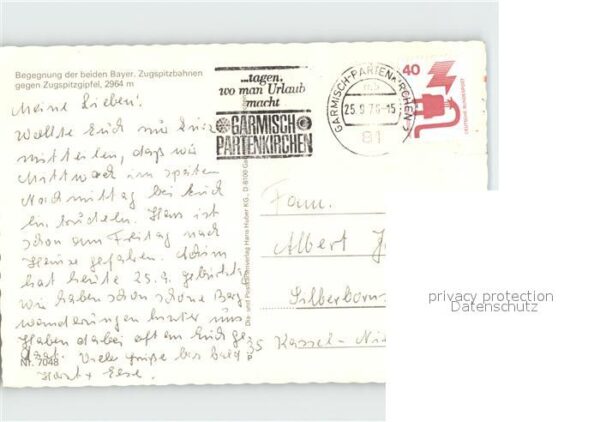 Begegnung der beiden Bayer. Zugspitzbahnen
gegen Zugspitzgipfel, 2964 m
Meine Lieben!
Wollte Euch nur kurz
mitteilen, daß wir
Mittwoch im späten
Nachmittag bei Euch
ein trudeln. Hans ist
schon am Freitag nach
Hause gefahren.
hat heute 25.9. geburtst.
wir haben schon schöne Berg
wanderungen hinter uns
Haben dabei oft an Euch ge
dacht. Viele grüße bis bald
Horst + Else.
Nr. 7048
...tagen,
wo man Urlaub
macht
GARMISCH
PARTENKIRCHEN
GARMISCH-PARTENKIRCHEN
25.9.76-15
81
40
DEUTSCHE BUNDESPOST
Dia- und Postkartenverlag Hans Huber KG., D-8100 Garmisch
Fam.
Albert
Silberborns
35 Kassel-Nie
privacy protection
Datenschutz